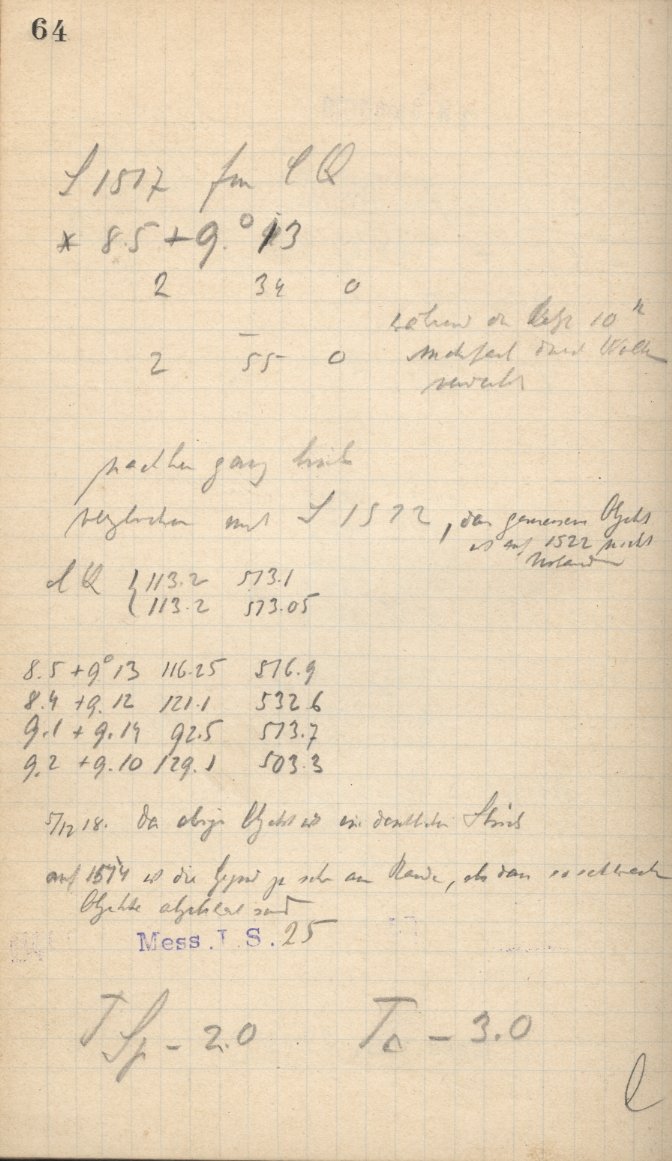 64
S 1517 für l Q
* 8.5 + 9.°13
2 34 0
während der letzt 10 m
mehrfach durch Wolken
2 55 0
nachher ganz
verglichen mit S 1522, das gemessene Objekt
ist auf 1522 nicht
vorhanden
l Q { 113.2 573.1
{ 113.2 573.05
8.5 + 9°13 116.25 576.9
8.4 + 9.12 121.1 532.6
9.1 + 9.14 92.5 573.7
9.2 + 9.10 129.1 503.3
5/12 18. Das obige Objekt ist ein deutlicher Strich
auf 1514 ist die Gegend zu sehr am Rande, als dass so schwache
Objekte abgebildet sind
Mess. J. S. 25
T Sp - 2.0 Ta - 3.0
l